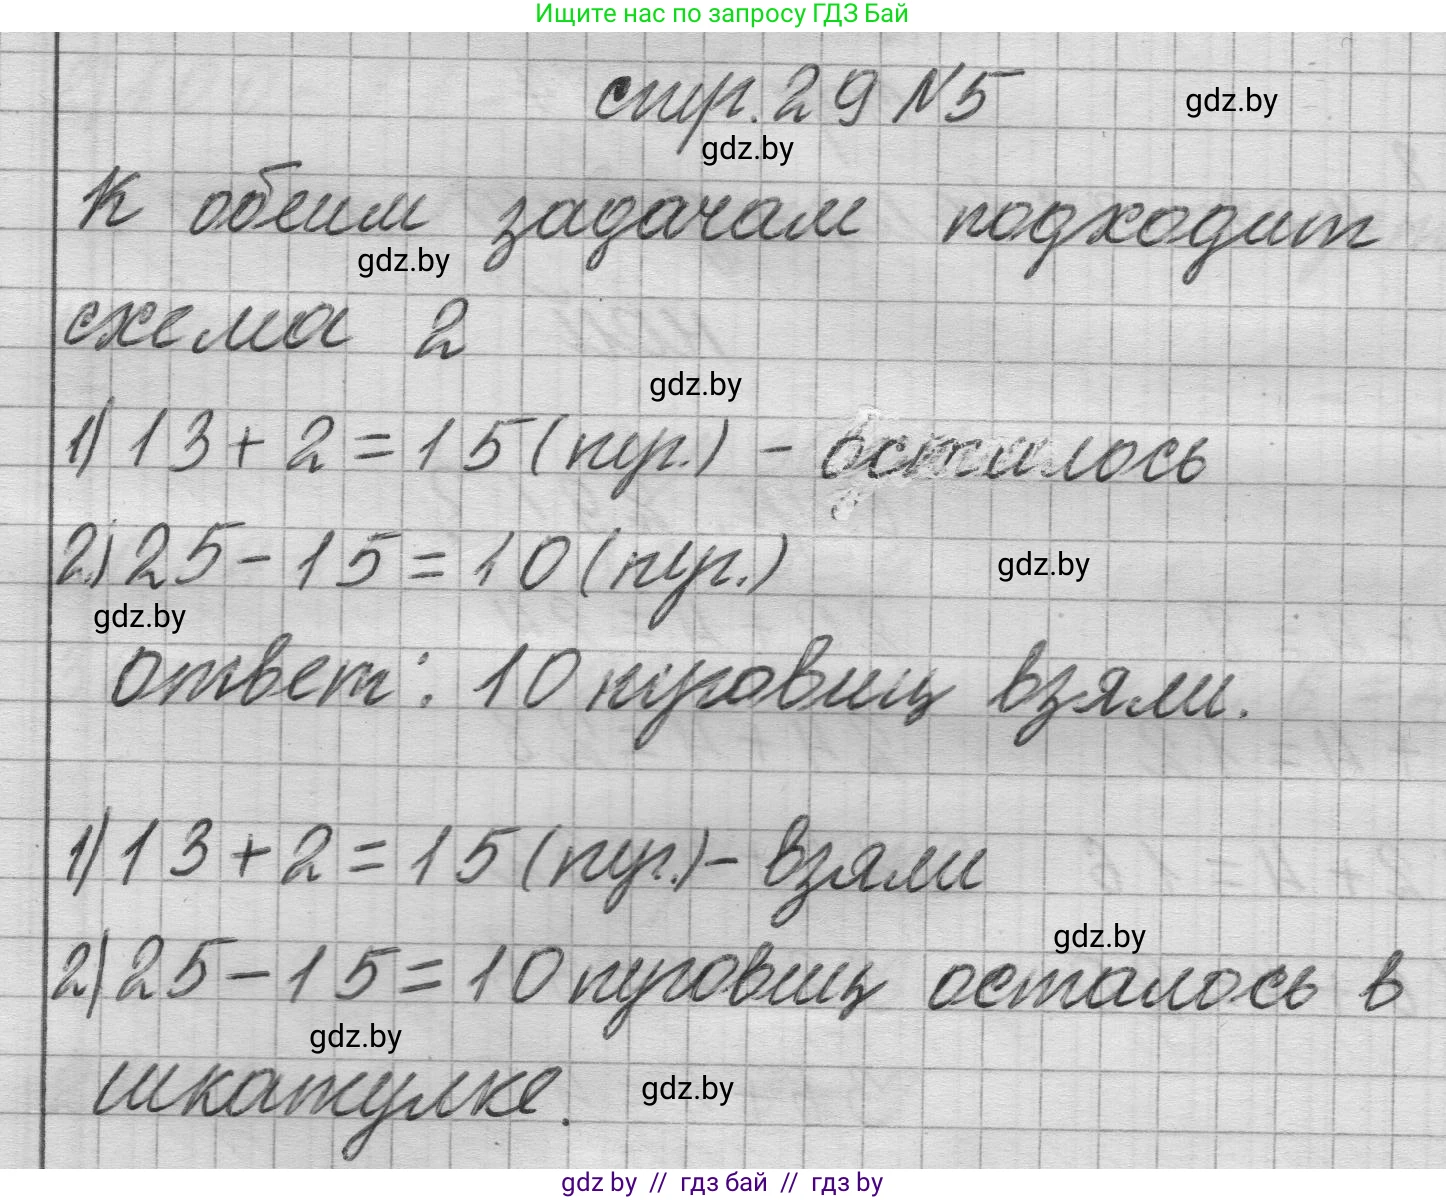 Ищите нас по запросу ГДЗ Бай
стр. 29 №5
gdz.by
gdz.by
К обеим задачам подходит
gdz.by
схема 2
gdz.by
1) 13 + 2 = 15 (пуг.) - осталось
2) 25 - 15 = 10 (пуг.)
gdz.by
gdz.by
Ответ: 10 пуговиц взяли.
1) 13 + 2 = 15 (пуг.) - взяли
gdz.by
2) 25 - 15 = 10 пуговиц осталось в
gdz.by
шкатулке.
gdz.by
gdz by // гдз бай // гдз by